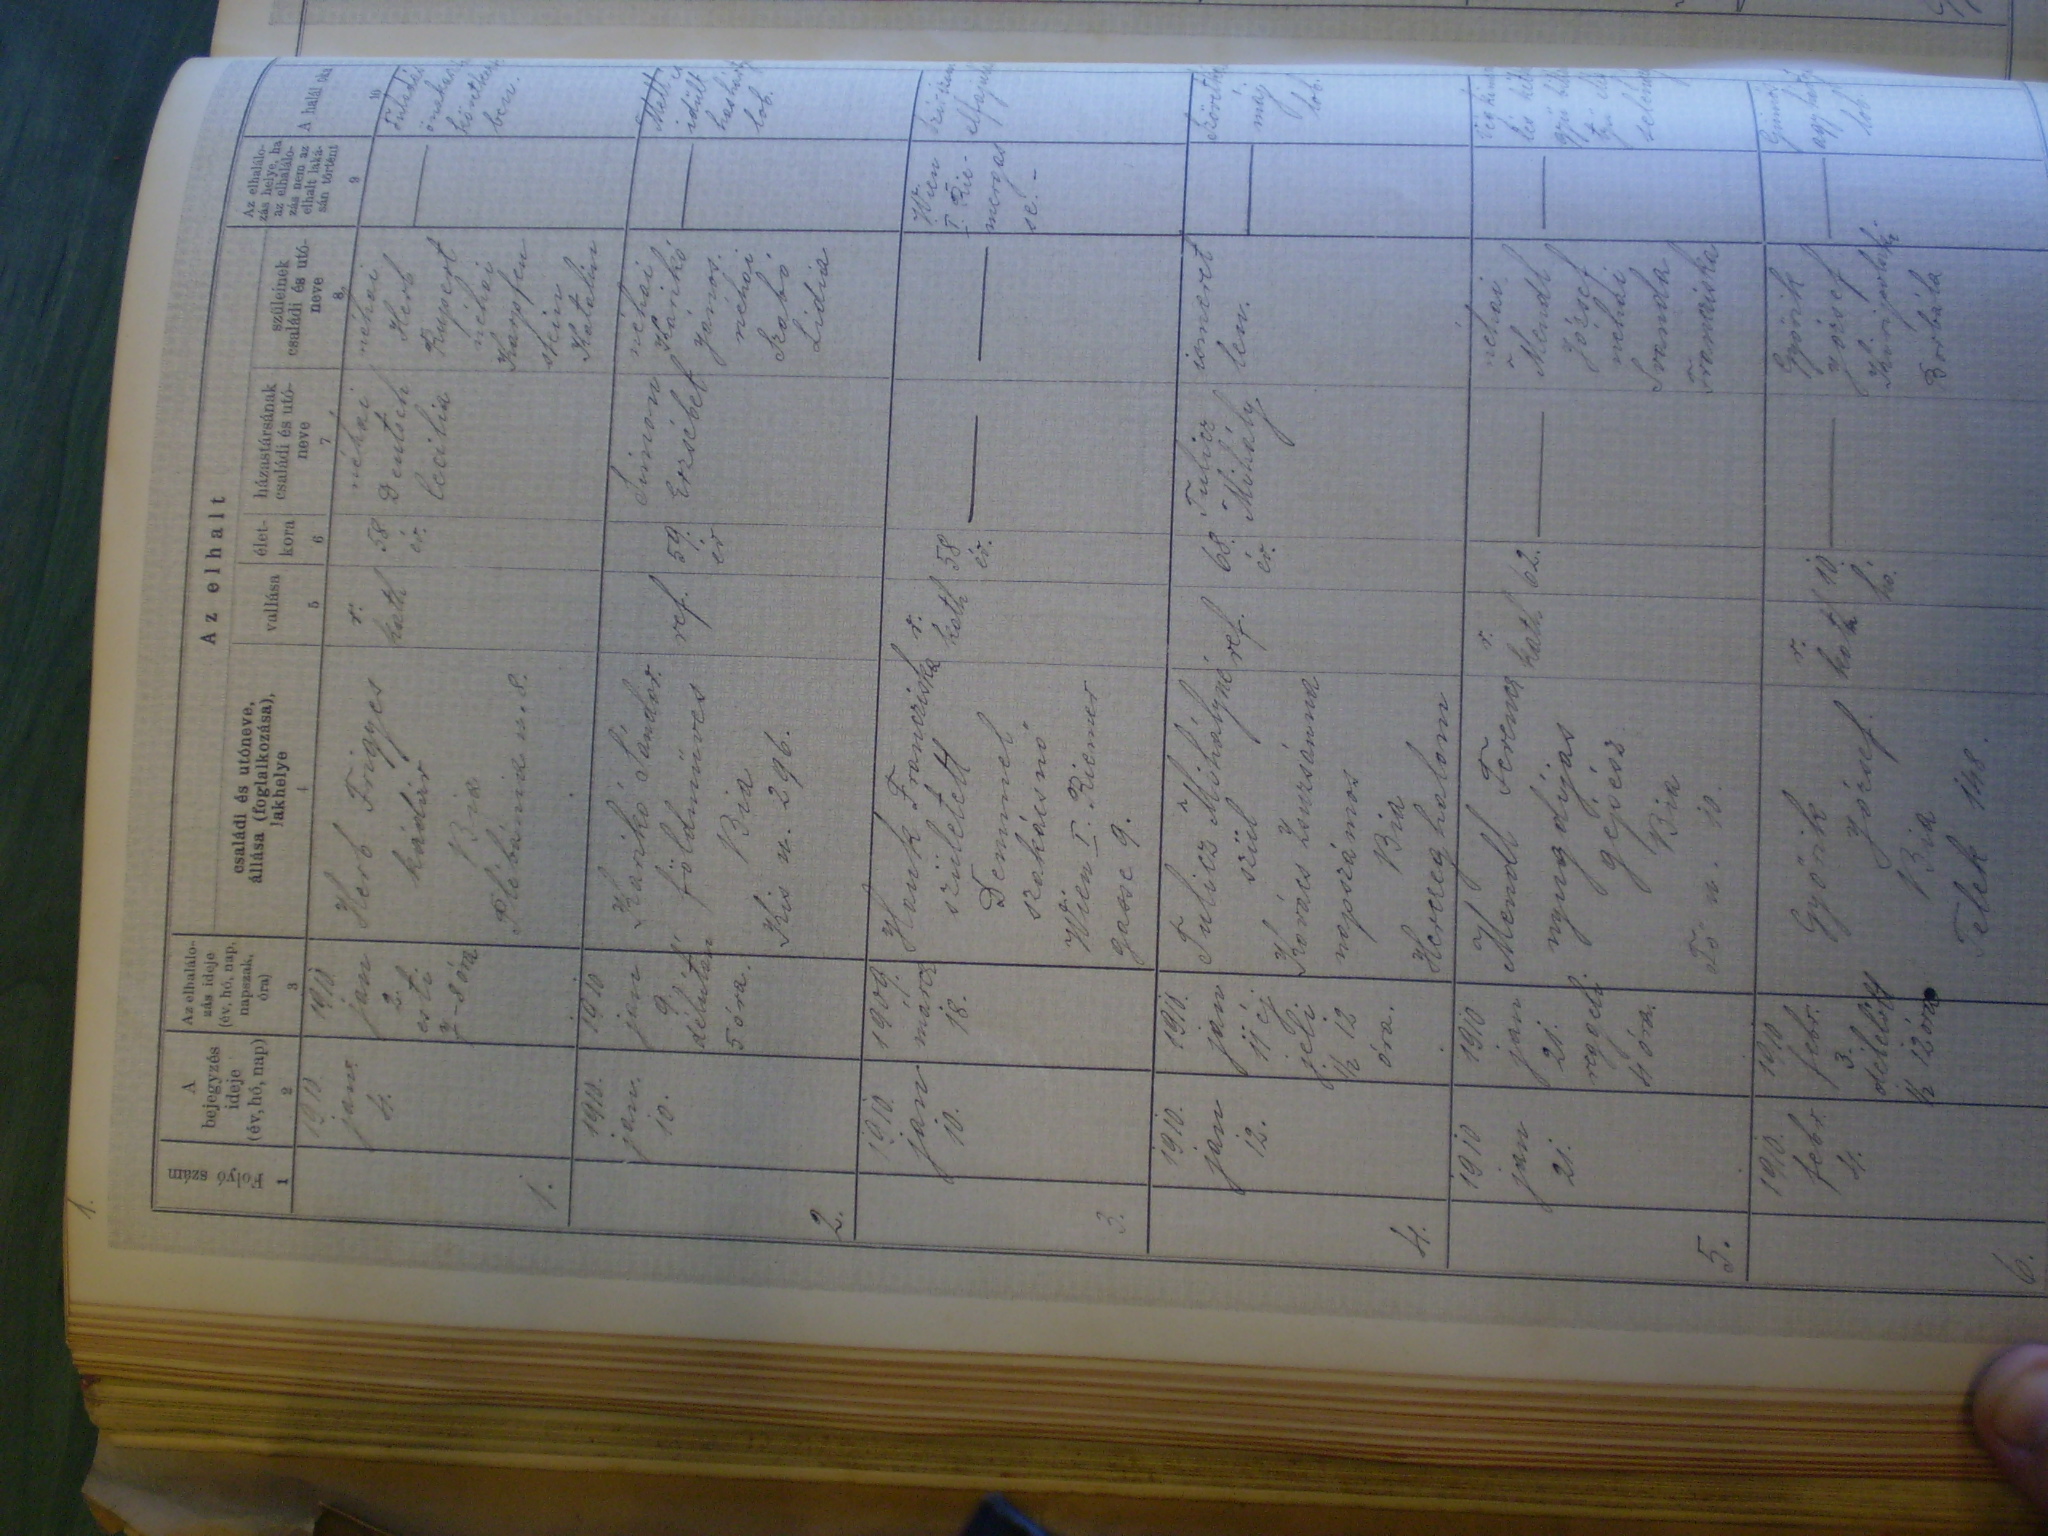 1.
Az elhalt
Folyó szám
A bejegyzés ideje (év, hó, nap)
Az elhalálo-
zás ideje
(év, hó, nap,
napszak,
óra)
családi és utóneve,
állása (foglalkozása),
lakhelye
vallása
élet-
kora
házastársának
családi és utó-
neve
szüleinek
családi és utó-
neve
Az elhalálo-
zás helye, ha
az elhalálo-
zás nem az
elhalt laká-
sán történt
A halál oka
1 2 3 4 5 6 7 8 9 10
1.
1910
jan.
4.
1910
jan
2.
esti
7 óra
Herb Frigyes
kádár
Bia
Plébánia u. 8.
r.
kath
58
év.
néhai
Deutsch
Cecilia
néhai
Herb
Rupert
néhai
Karpfen
stein
Katalin
ben.
2.
1910.
jan.
10.
1910
jan
9.
délután
5 óra.
Hankó Sándor
földmüves
Bia
Kis u. 296.
ref.
59.
év
Simon
Erzsébet
néhai
Hankó
János.
néhai
Szabó
Lidia
idült
lob.
3.
1910.
jan
10.
1909.
márc
18.
Hank Franciska
született
Demmel
szakácsnő
Wien I. Riemer
gasse 9.
r.
kath
58
év.
Wien
I. Rie-
mergas
se. -
4.
1910.
jan
12.
1910.
jan
11 éj
jeli
1/2 12
óra.
Tulicz Mihályné
szül
Kovács Zsuzsánna
napszámos
Bia
Herczeghalom
ref.
68.
év.
Tulicz
Mihály
ismeret
len.
máj
lob.
5.
1910
jan
21.
1910
jan
21.
reggeli
4 óra.
Mendl Ferencz
nyugdijas
gépész
Bia
Fő u. 10.
r.
kath
62.
néhai
Mendl
József
néhai
Svanda
Franciska
6.
1910.
febr.
4.
1910
febr.
3.
délelőtt
1/2 12 óra
Győrik
József
Bia
Telek 148.
r.
kath
10
hó.
Győrik
József
Borbála
lob